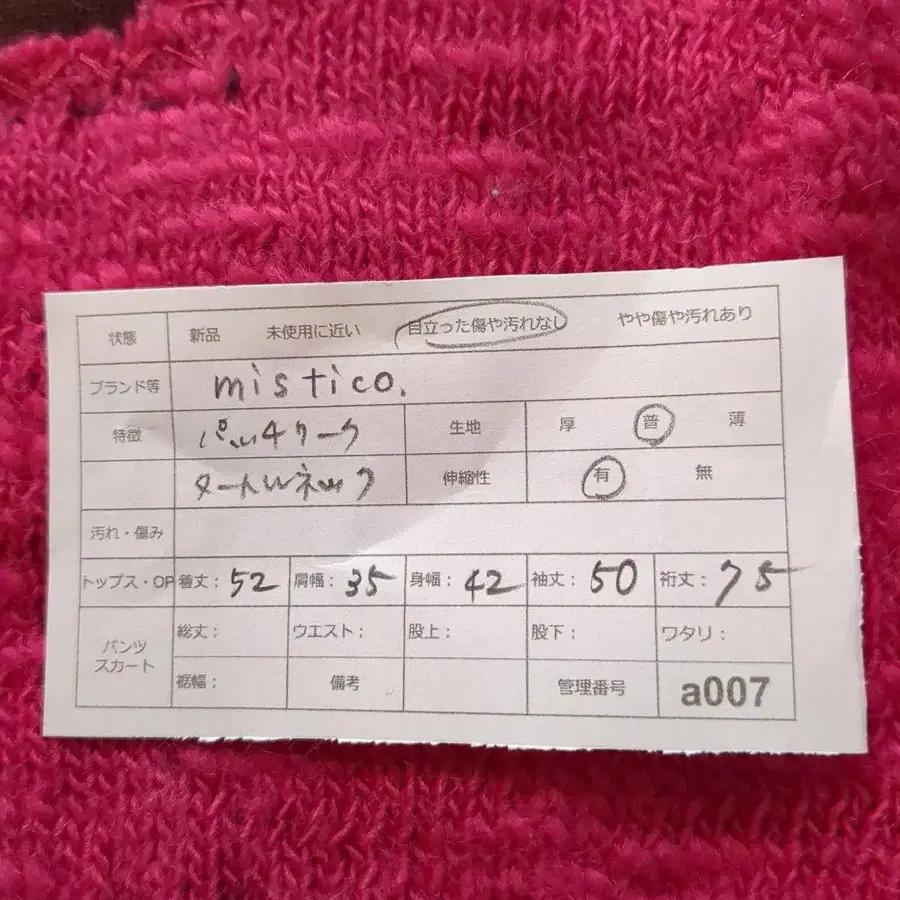 状態 新品 未使用に近い 目立った傷や汚れなし やや傷や汚れあり
ブランド等 mistico.
特徴 パッチワーク 生地 厚 普 薄
タートルネック 伸縮性 有 無
汚れ・傷み
トップス・OP 着丈: 52 肩幅: 35 身幅: 42 袖丈: 50 裄丈: 75
パンツ スカート 総丈: ウエスト: 股上: 股下: ワタリ:
裾幅: 備考 管理番号 a007